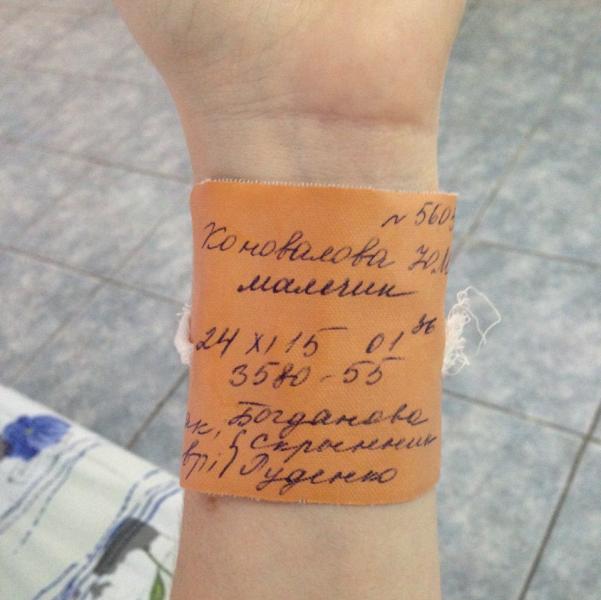 № 5605
Коновалова Ю.М
мальчик
24 XI 15 01 36
3580 - 55
ак. Богданова
вр. { Скрыннник
Руденко